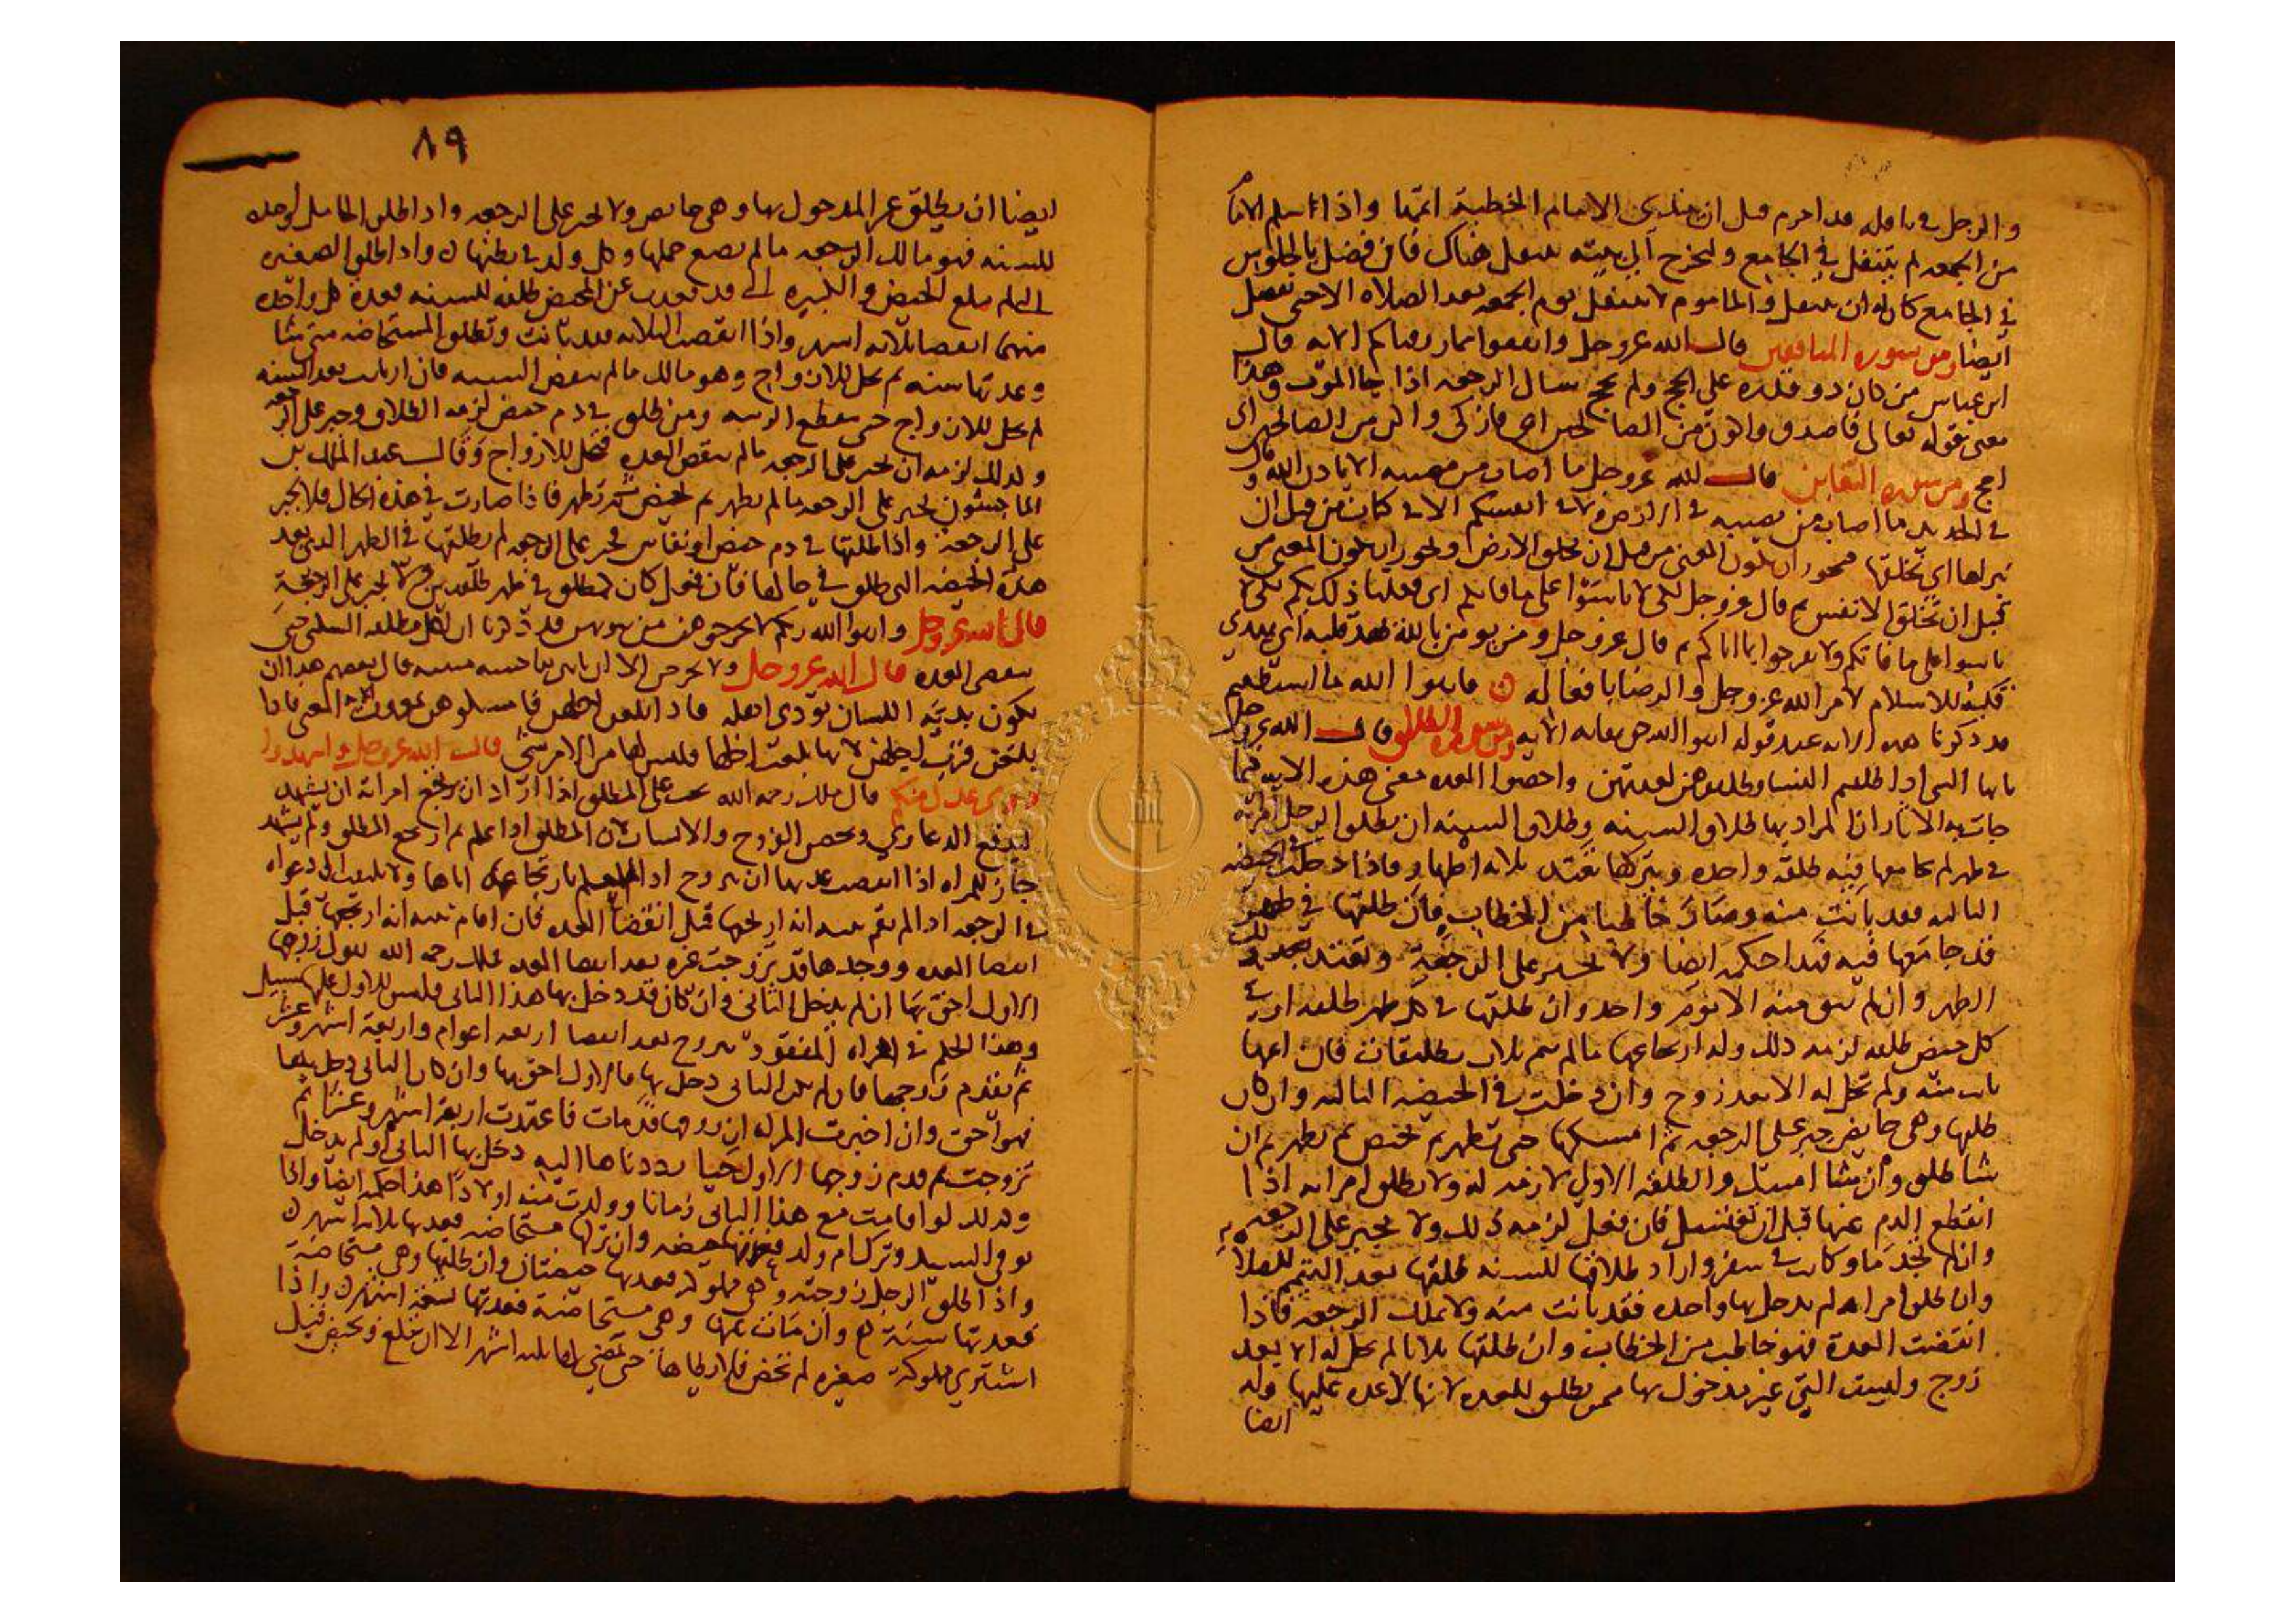 والرجل في نافلة قد احرم قبل ان يبتدئ الامام الخطبة اتمها واذا سلم الامام
من الجمعه لم يتنفل في الجامع وليخرج الى بيته يتنفل هناك فان فضل بالجلوس
في الجامع كان له ان يتنفل والماموم لا يتنفل يوم الجمعه بعد الصلاه الا حتى
ايضا ومن سورة المنافقين قال الله عز وجل وانفقوا مما رزقناكم الايه قال
ابن عباس من كان ذو قدره على الحج ولم يحج سال الرجعه اذا جا الموت وهذا
معنى قوله تعالى فاصدق واكون من الصالحين اي فازكى واكن من الصالحين اي
احج ومن سورة التغابن قال الله عز وجل ما اصاب من مصيبه الا باذن الله وقال
في الحديد ما اصاب من مصيبه في الارض ولا في انفسكم الا في كتاب من قبل ان
نبراها اي نخلقها فيجوز ان يكون المعنى من قبل ان نخلق الارض ويجوز ان يكون المعنى من
قبل ان نخلق الانفس ثم قال عز وجل لكي لا تاسوا على ما فاتكم اي فعلنا ذلك بكم لكي لا
تاسوا على ما فاتكم ولا تفرحوا بما اتاكم ثم قال عز وجل ومن يومن بالله يهد قلبه اي يهدي
قلبه للاسلام لامر الله عز وجل والرضا بافعاله فاتقوا الله ما استطعتم
قد ذكرنا هذه الايه عند قوله اتقوا الله حق تقاته الايه ومن سورة الطلاق قال الله عز وجل
يايها النبي اذا طلقتم النسا فطلقوهن لعدتهن واحصوا العده معنى هذه الايه فيما
جات به الاثار ان المراد بها طلاق السنه وطلاق السنه ان يطلق الرجل امراته
في طهر لم يجامعها فيه طلقة واحده ويتركها تعتد ثلاثه اطهار فاذا دخلت في الحيضه
الثالثه فقد بانت منه وصار خاطبا من الخطاب فان طلقها في طهر
قد جامعها فيه فكذا حكمه ايضا ولا يجبر على الرجعة وتعتد بذلك
الطهر وان لم يبق منه الا يوم واحد وان طلقها في كل طهر طلقه او في
كل حيض طلقه لزمه ذلك وله ارتجاعها ما لم يتم ثلاث تطليقات فان اتمها
بانت منه ولم تحل له الا بعد زوج وان دخلت في الحيضه الثالثه وان كان
طلقها وهي حايض جبر على الرجعه ثم امسكها حتى تطهر ثم تحيض ثم تطهر ثم ان
شا طلق وان شا امسك والطلقه الاولى لازمه له ولا يطلق امراته اذا
انقطع الدم عنها قبل ان تغتسل فان فعل لزمه ذلك ولا يجبر على الرجعه
وان لم تجد ما وكانت في سفر واراد طلاقها للسنه طلقها بعد التيمم للصلاة
وان طلق امراه لم يدخل بها واحده فقد بانت منه ولا يملك الرجعه فاذا
انقضت العدة فهو خاطب من الخطاب وان طلقها ثلاثا لم تحل له الا بعد
زوج وليست التي غير مدخول بها ممن يطلق للعده لانها لا عده عليها وله
ايضا
٨٩
ايضا ان يطلق غير المدخول بها وهي حايض ولا يجبر على الرجعه واذا طلق الحامل لوحده
للسنه فهو مالك الرجعه ما لم تضع حملها وكل ولد في بطنها واذا طلق الصغيره
التي لم تبلغ الحيض والكبيره التي قد قعدت عن المحيض طلقه للسنه فعدة كل واحده
منهما انقضا ثلاثه اشهر واذا انقضت الثلاثه فقد بانت وتطلق المستحاضه متى شا
وعدتها سنه ثم تحل للازواج وهو مالك ما لم تنقض السنه فان ارتابت بعد السنه
لم تحل للازواج حتى تنقطع الريبه ومن طلق في دم حيض لزمه الطلاق وجبر على الرجعه
وكذلك لزمه ان يجبر على الرجعه ما لم تنقض العده فتحل للازواج وقال عبد الملك بن
الماجشون يجبر على الرجعه ما لم تطهر ثم تحيض ثم تطهر فاذا صارت في هذه الحال فلا يجبر
على الرجعة واذا طلقها في دم حيض او نفاس فجبر على الرجعه لم يطلقها في الطهر الذي بعد
هذه الحيضه التي طلق في حالها فان فعل كان مطلق في طهر طلقتين ولا يجبر على الرجعة
قال الله عز وجل واتقوا الله ربكم لا تخرجوهن من بيوتهن قد ذكرنا ان لكل مطلقه السكنى حتى
تنقضي العده قال الله عز وجل ولا يخرجن الا ان ياتين بفاحشه مبينه قال بعضهم هذا ان
تكون بذية اللسان تؤذي اهله فاذا بلغن اجلهن فامسكوهن بمعروف الايه المعنى فاذا
بلغن قرب اجلهن لانها اذا بلغت اجلها فليس لها من الامر شي قال الله عز وجل واشهدوا
ذوي عدل منكم قال ملك رحمه الله يجب على المطلق اذا اراد ان يراجع امراته ان يشهد
ليدفع الدعاوي ويحصن الزوج والانساب لان المطلق اذا اعلم ثم ارتجع المطلق ولم يشهد
جاز للمراه اذا انقضت عدتها ان تتزوج اذا لم تعلم بارتجاعه اياها ولا يلتفت الى دعواه
في الرجعه اذا لم تقم بينه انه ارتجعها قبل انقضا العده فان اقام بينه انه ارتجعها قبل
انقضا العده ووجدها قد تزوجت غيره بعد انقضا العده فملك رحمه الله يقول زوجها
الاول احق بها ان لم يدخل الثاني وان كان قد دخل بها هذا الثاني فليس للاول عليها سبيل
وهذا الحكم في امراه المفقود تتزوج بعد انقضا اربعه اعوام واربعة اشهر وعشر
ثم يقدم زوجها فان لم يكن الثاني دخل بها فالاول احق بها وان كان الثاني دخل بها
فهو احق وان اخبرت المراه ان زوجها قد مات فاعتدت اربعة اشهر وعشرا ثم
تزوجت ثم قدم زوجها الاول حيا رددناها اليه دخل بها الثاني او لم يدخل
وكذلك لو اقامت مع هذا الثاني زمانا وولدت منه اولادا هذا حكمه ايضا واذا
توفي السيد وترك ام ولد فعدتها حيضه وان تركها مستحاضه فعدتها ثلاثه اشهر
واذا طلق الرجل زوجته وهي مملوكه فعدتها حيضتان وان طلقها وهي مستحاضة
فعدتها سنة وان مات عنها وهي مستحاضة فعدتها تسعة اشهر واذا
اشترى مملوكة صغيره لم تحض فلا يطاها حتى تمضي لها ثلثه اشهر الا ان تبلغ وتحيض قبل